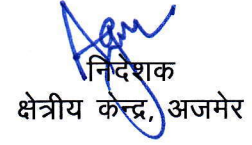 निदेशक
क्षेत्रीय केन्द्र, अजमेर